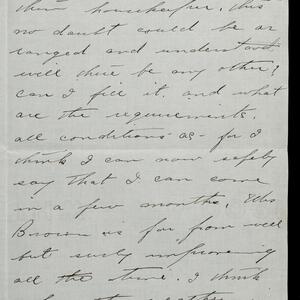 their housekeeper, this
no doubt could be ar
ranged and understood.
will there be any other?
can I fill it, and what
are the requirements.
all conditions &c - for I
think I can now safely
say that I can come
in a few months, Mrs
Brown is far from well
but surly improving
all the time. I think